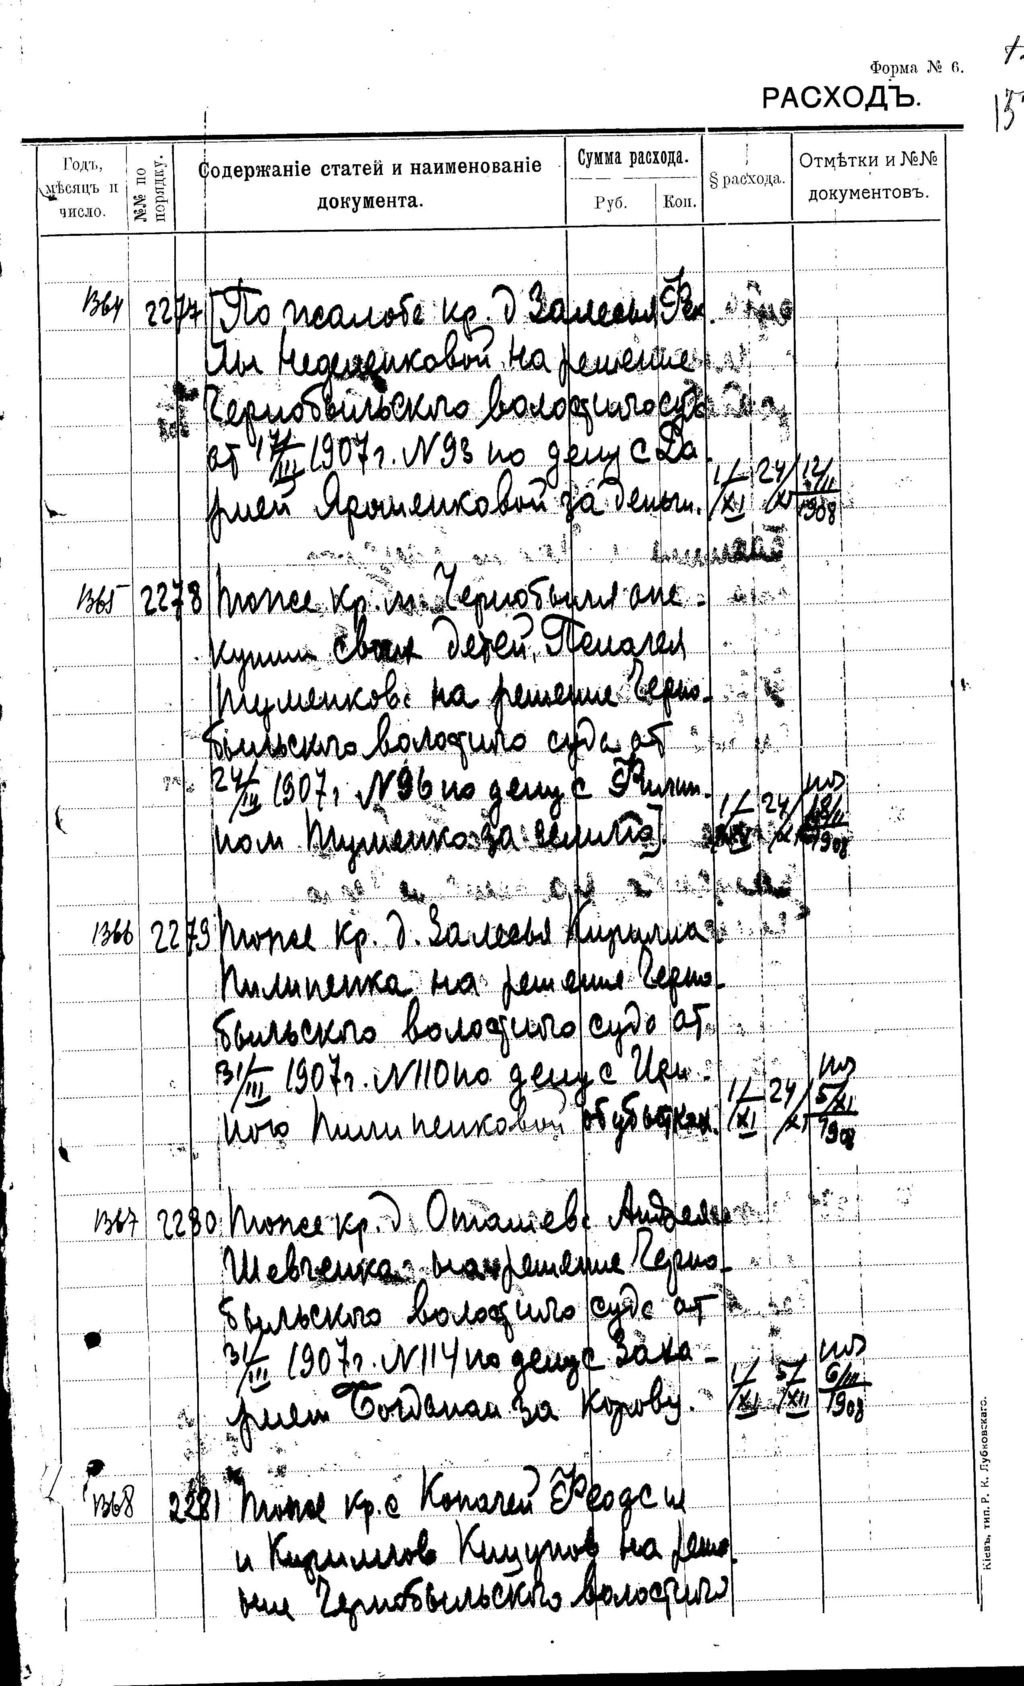 Форма № 6.
РАСХОДЪ.
Годъ, мѣсяцъ и число.
№№ по порядку.
Содержаніе статей и наименованіе документа.
Сумма расхода.
Руб. Коп.
§ расхода.
Отмѣтки и №№ документовъ.
1364 2277 По жалобе кр. д Залесья Фек
лы Неделенковой на решение
Чернобыльского волостного суда
от 17/III 1907 г. N 93 по делу с Да
рией Ярошенковой за деньги. 1/XI 24/XI 12/II 1908
1365 2278 Тоже кр. м. Чернобыля опе-
кунши своих детей, Пелагеи
Тущенков. на решение Черно-
быльского волостного суда от
24/III 1907 г N 96 по делу с Филип-
пом Тущенко за землю]. 1/XI 24/XI 18/II 1908
1366 2279 Тоже кр. д. Залесья Кирилла
Пилипенка на решение Черно-
быльского волостного суда от
31/III 1907 г. N 110 по делу с Ири-
ною Пилипенковой об убытках. 1/XI 24/XI 5/XI 1908
1367 2280 Тоже кр. д Опачев. Андрея
Шевченка на решение Черно-
быльского волостного суда от
31/III 1907 г. N 114 по делу с Заха-
рием Богданам за корову. 1/XI 5/XII 6/III 1908
1368 2281 Тоже кр. с Копачей Феодси
и Кирилов на реше
ние Чернобыльского волостного
Кіевъ, тип. Р. К. Лубковскаго.